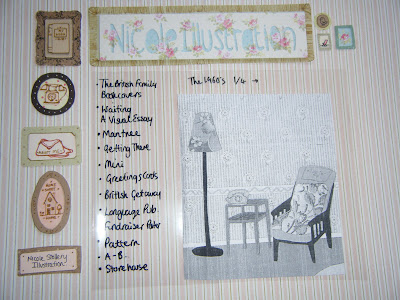 Nicole Illustration
The 1960's 1/4 →
• The British Family
Bookcovers
• Waiting
A Visual Essay
• Mantree
• Getting There
• Mini
• Greetings Cards
• British Getaway
• Language Pub.
• Fundraiser Poster
• Pattern
• A - B
• Storehouse
Nicole Stellery
Illustration